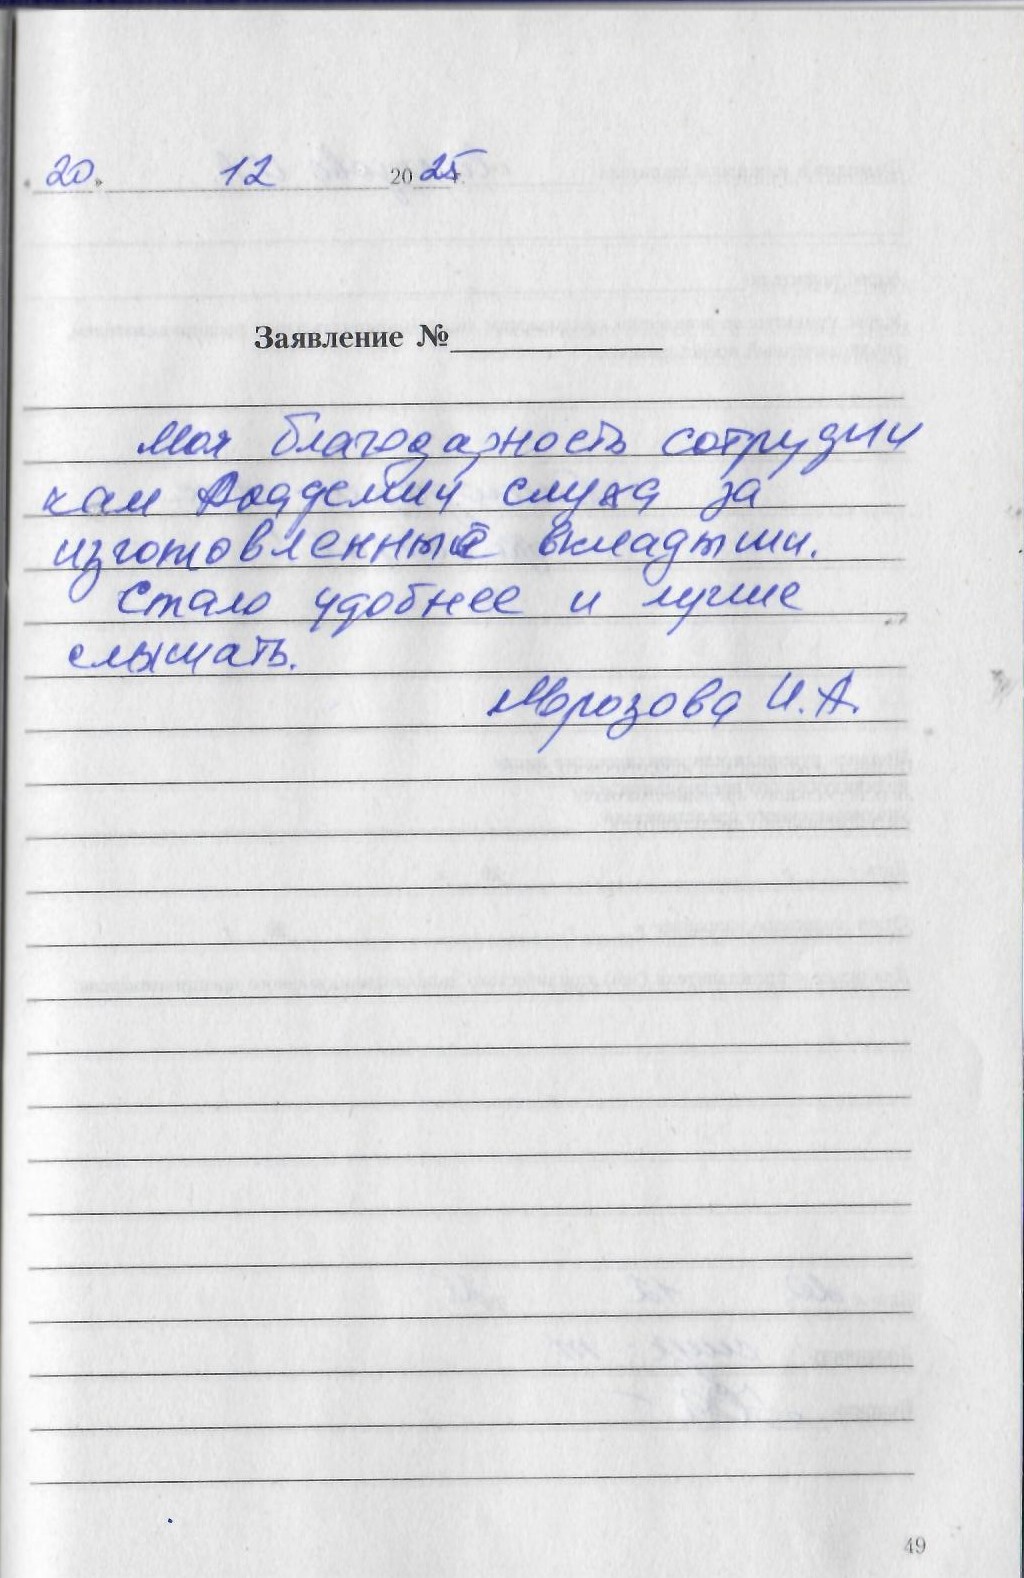 20. 12 2025 г.
Заявление №
Моя благодарность сотрудни
кам Академии слуха за
изготовленные вкладыши.
Стало удобнее и лучше
слышать.
Морозова И. А.
49